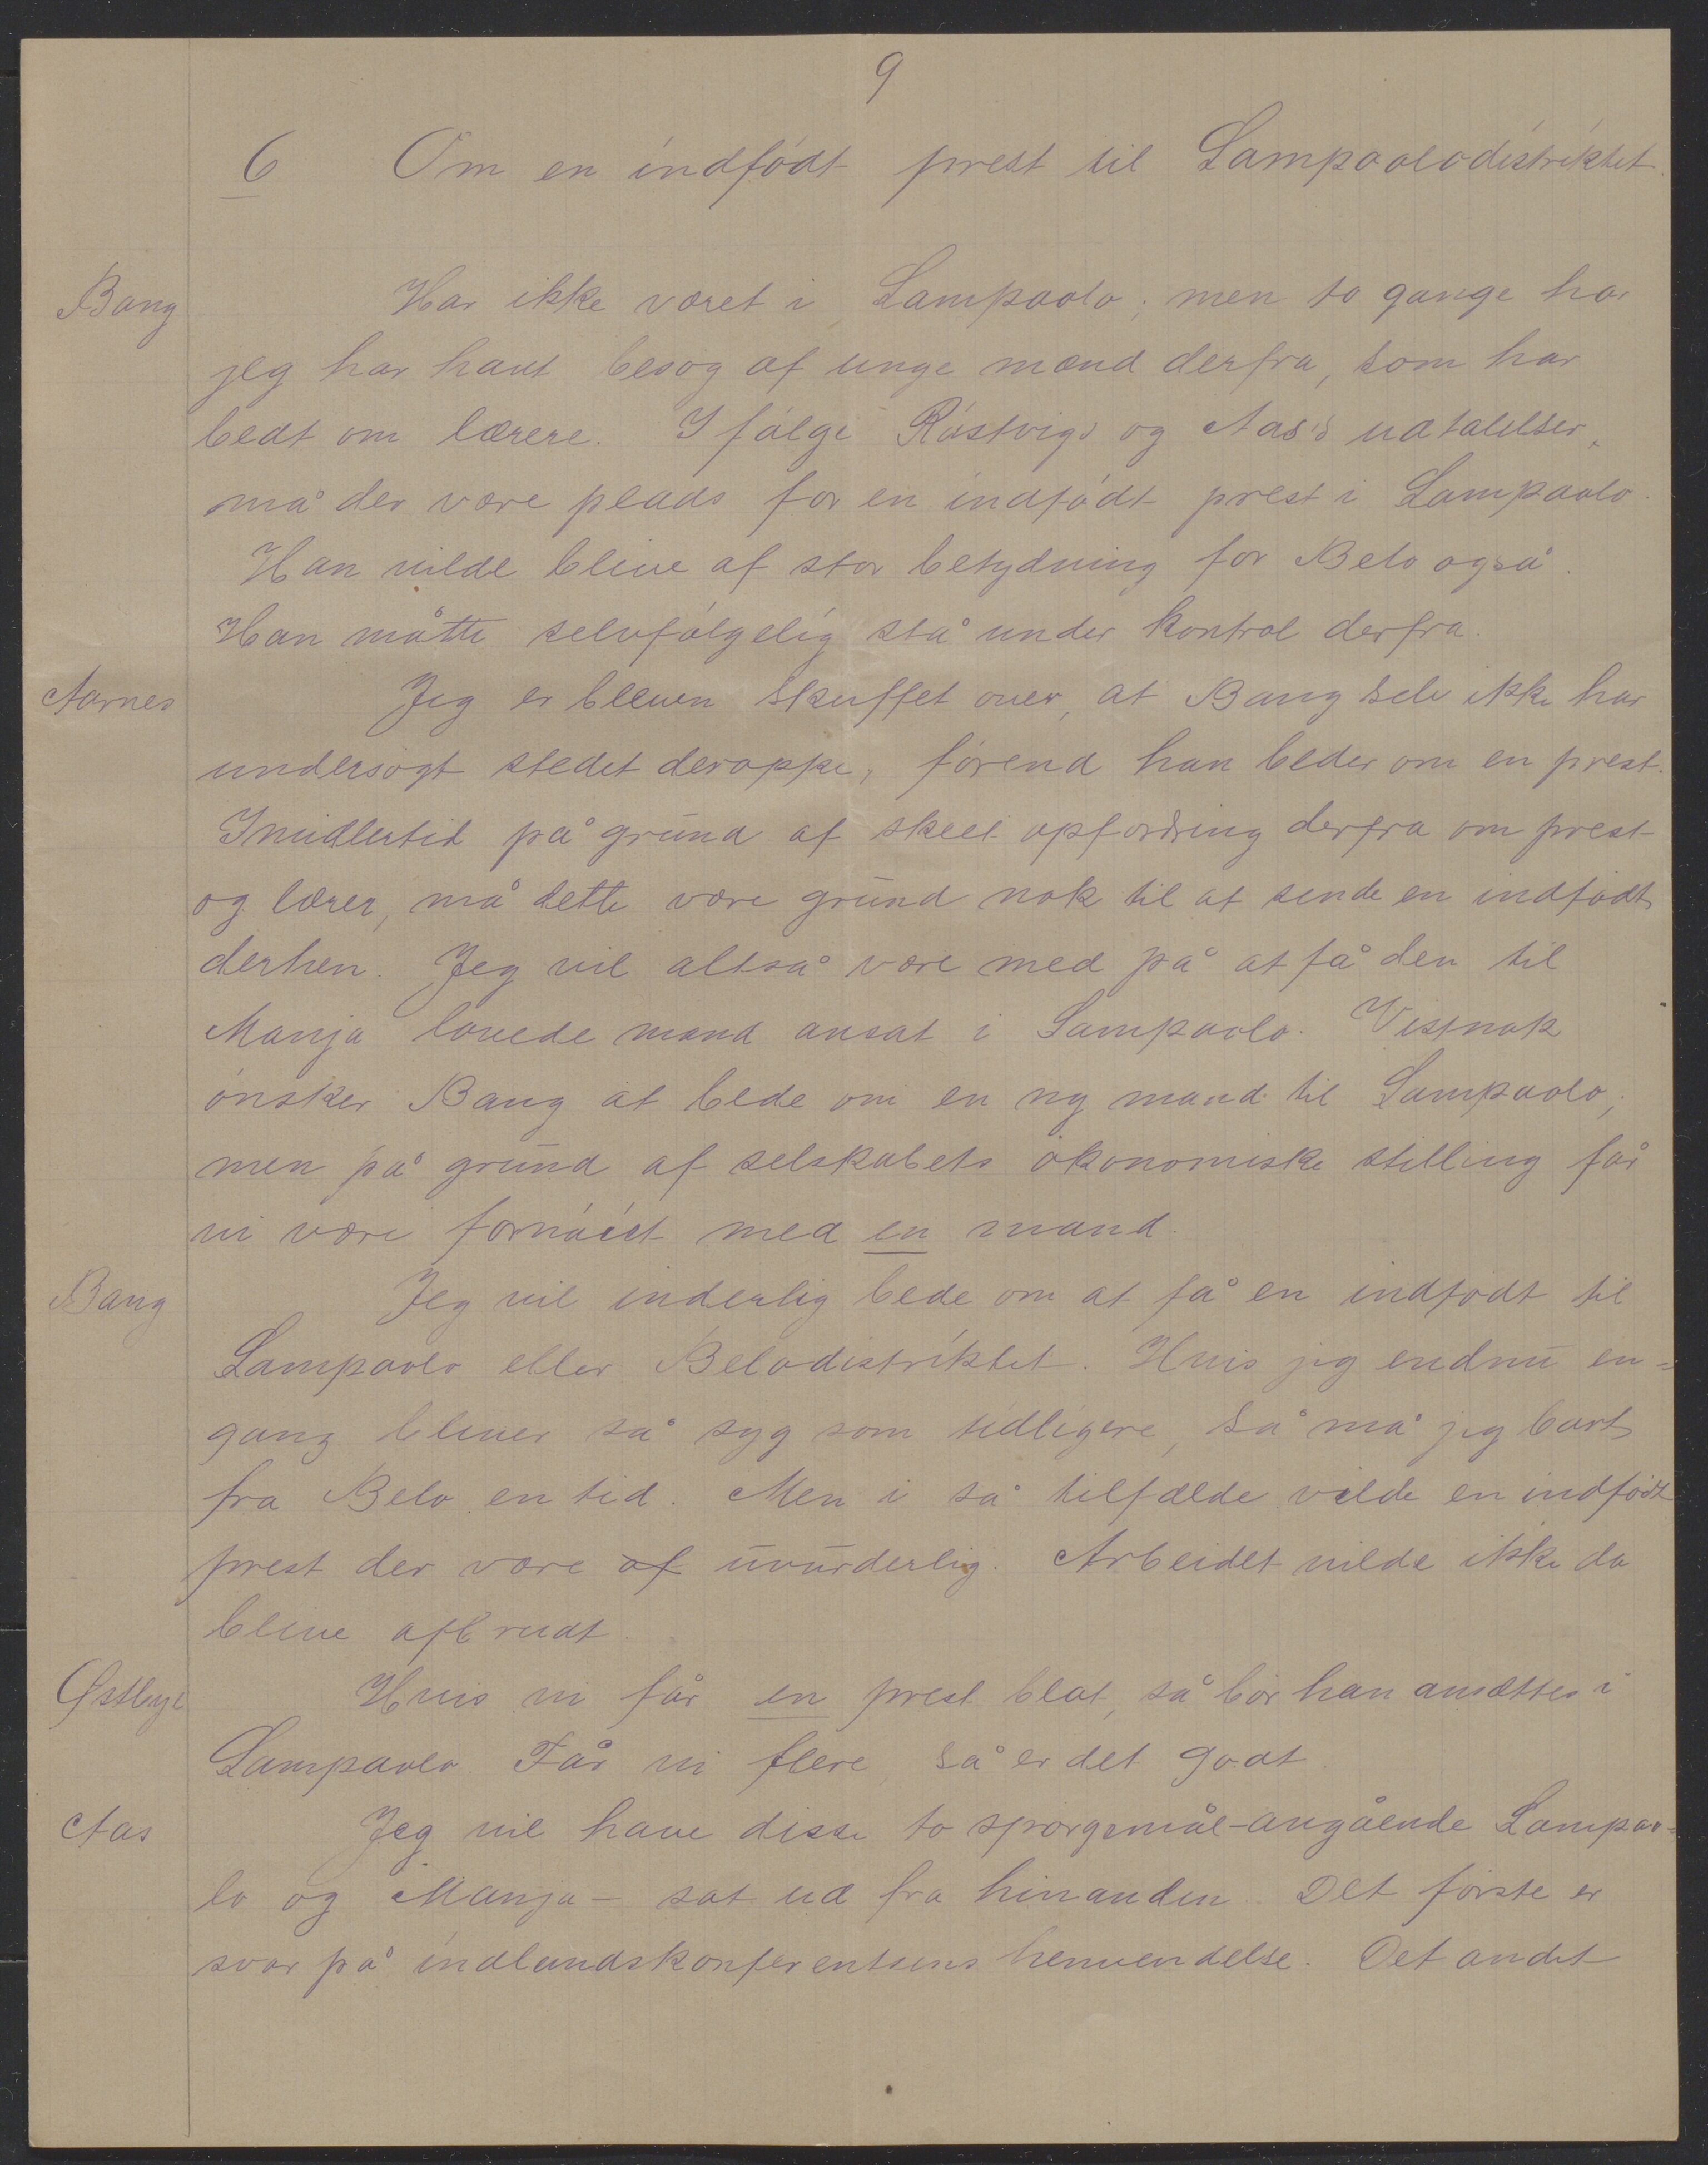 9
6 Om en indfødt prest til Lampaolodistriktet.
Bang Har ikke været i Lampaolo; men to gange har
jeg har havt besøg af unge mænd derfra, som har
bedt om lærere. I følge Røstvigs og Aas's udtalelser,
må der være plads for en indfødt prest i Lampaolo.
Han vilde blive af stor betydning for Belo også.
Han måtte selvfølgelig stå under kontrol derfra.
Aarnes Jeg er bleven skuffet over, at Bang selv ikke har
undersøgt stedet deroppe, førend han beder om en prest.
Imidlertid på grund af skeet opfordring derfra om prest
og lærer, må dette være grund nok til at sende en indfødt
derhen. Jeg vil altså være med på at få den til
Manja lovede mand ansat i Lampaolo. Vistnok
ønsker Bang at bede om en ny mand til Lampaolo;
men på grund af selskabets økonomiske stilling får
vi være fornøiet med en mand.
Bang Jeg vil inderlig bede om at få en indfødt til
Lampaolo eller Belodistriktet. Hvis jeg endnu en=
gang bliver så syg som tidligere, så må jeg bort
fra Belo en tid. Men i så tilfælde vilde en indfødt
prest der være af uvurderlig. Arbeidet vilde ikke da
blive afbrudt.
Østbye Hvis vi får en prest blot, så bør han ansættes i
Lampaolo. Får vi flere, så er det godt.
Aas Jeg vil have disse to spørgsmål - angående Lampao=
lo og Manja - sat ud fra hinanden. Det første er
svar på indlandskonferentsens henvendelse. Det andet